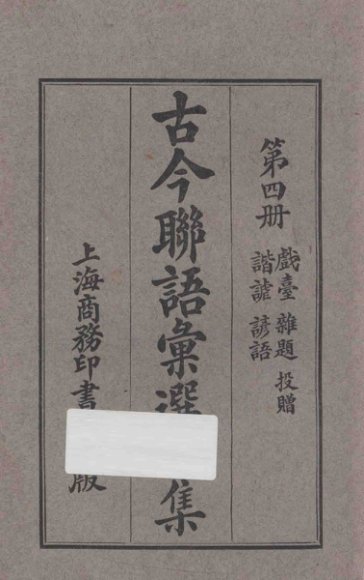 第四册
戲臺 雜題 投贈
諧謔 諺語
古今聯語彙選 集
上海商務印書 版